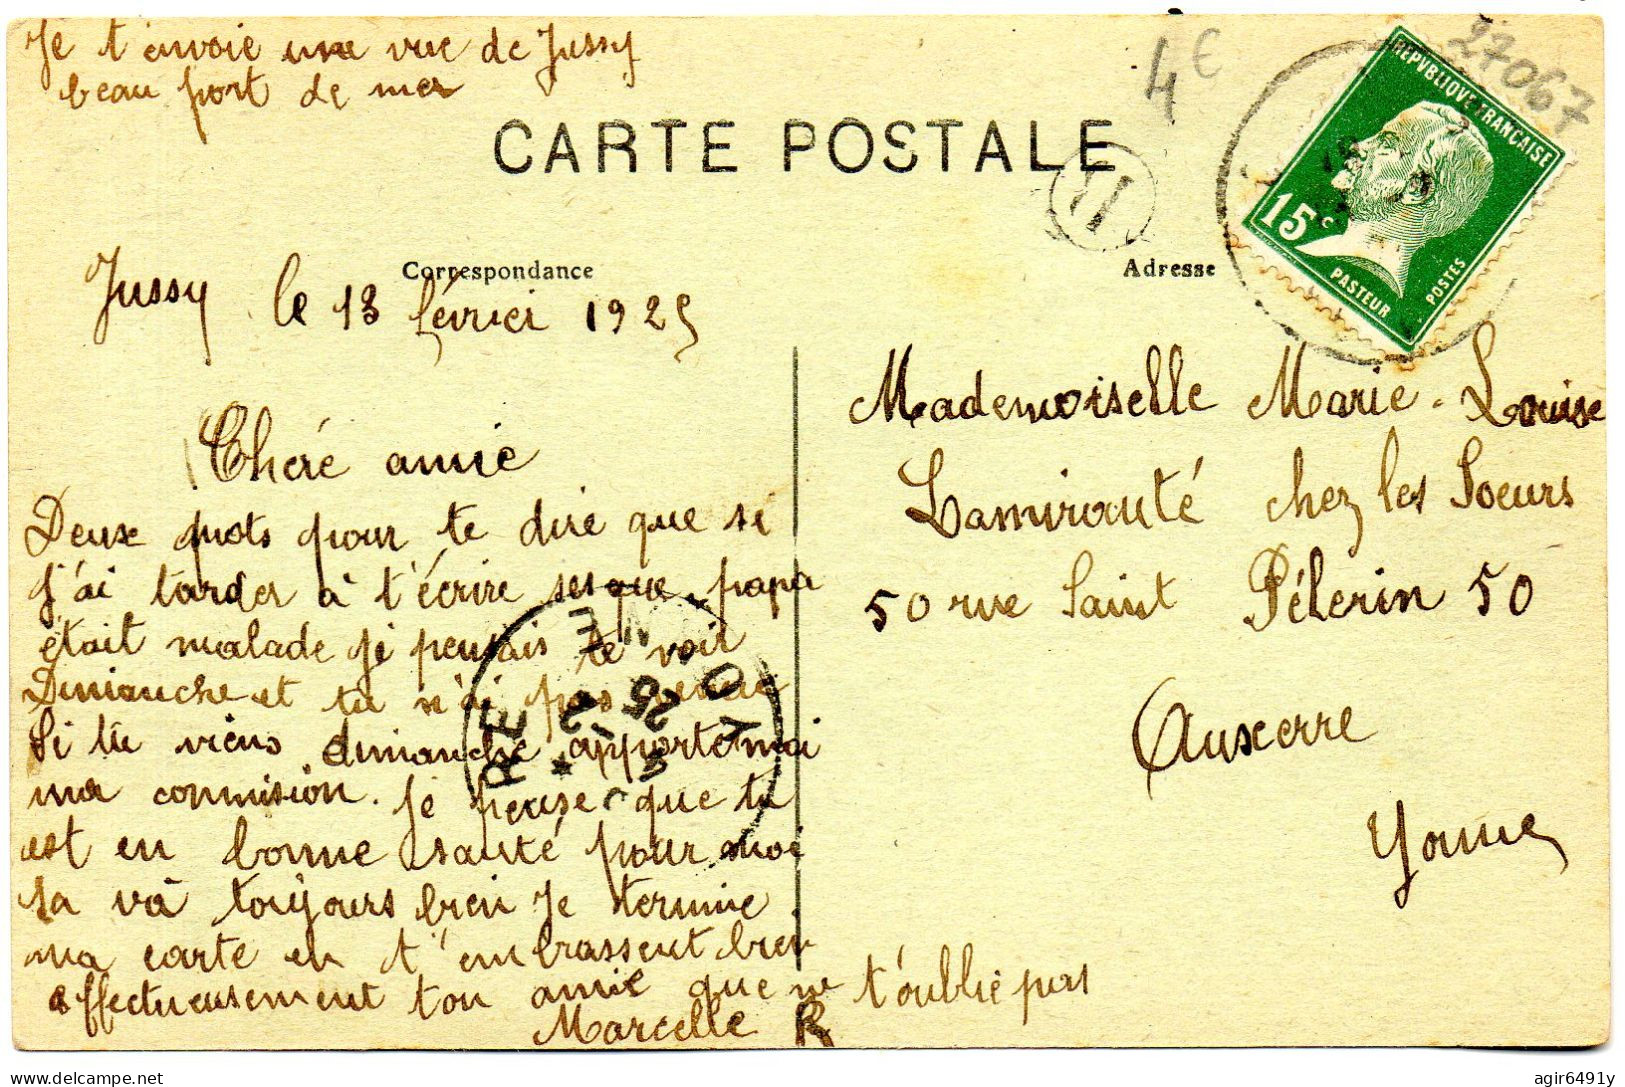 Je t'envoie une vue de Jussy
beau port de mer
4 €
27067
REPVBLIQVE FRANCAISE
15 c
PASTEUR
POSTES
CARTE POSTALE
Correspondance
Adresse
Jussy le 13 février 1925
Chéré amie
Deux mots pour te dire que si
j'ai tarder à t'écrire ses que papa
était malade je pensais te voir
Dimanche et tu n'ai pas venue
Si tu viens dimanche apporte moi
ma commision. Je pense que tu
est en bonne santé pour moi
sa và toujours bien je termine
ma carte en t'embrassent bien
effectueusement ton amie que ne t'oublie pas
Marcelle R
Mademoiselle Marie-Louise
Lamirouté chez les Soeurs
50 rue Saint Pélerin 50
Auxerre
Yonne
YONNE
25
agir6491y